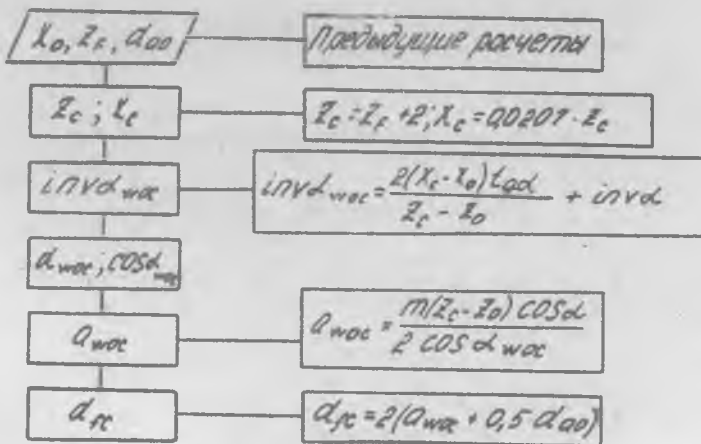 x₀, z_F, d_a0
Предыдущие расчеты
z_c ; x_c
z_c = z_F + 2; x_c = 0,0207 · z_c
inv α_w0c
inv α_w0c = 2(x_c - x_0) tg α / z_c - z_0 + inv α
α_w0c ; cos α_w0c
a_w0c
a_w0c = m(z_c - z_0) cos α / 2 cos α_w0c
d_fc
d_fc = 2(a_w0c + 0,5 d_a0)